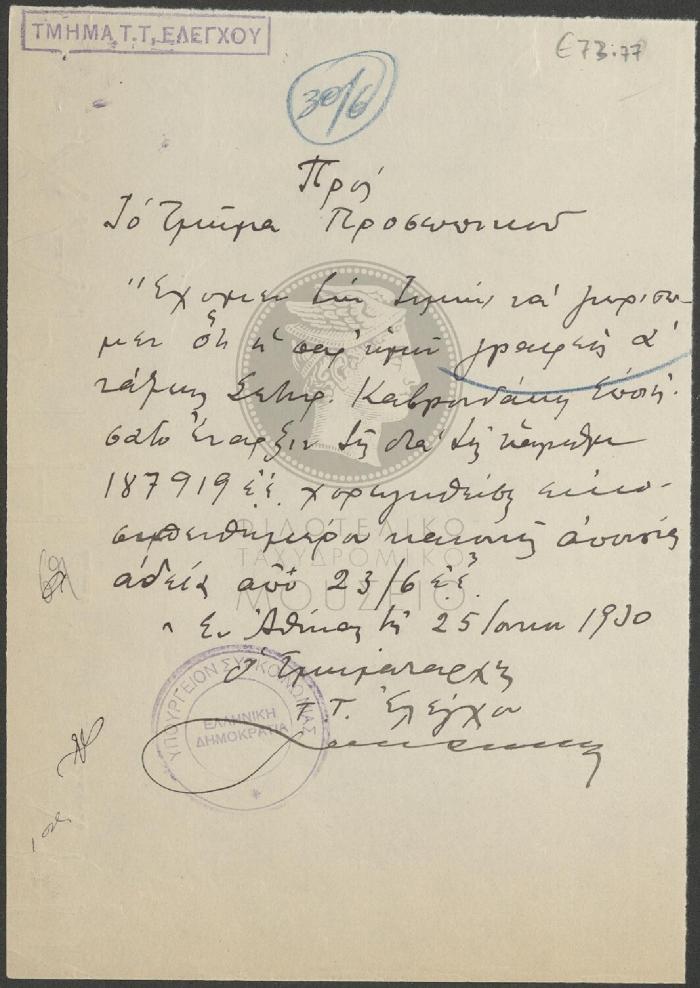 ΤΜΗΜΑ Τ.Τ. ΕΛΕΓΧΟΥ
€73.77
30/6
Πρός
Τό Τμῆμα Προσωπικοῦ
Ἔχομεν τήν τιμήν νά γνωρίσω
μεν ὅτι ἡ παρ' ἡμῖν γραφεύς α'
τάξεως Καβρουδάκη ἐποιή
σατο ἔναρξιν τῆς διά τῆς
187919 ἐ.ἔ. χορηγηθείσης εἰκο
σιπενθημέρου κανονικῆς ἀπουσίας
ἀδείας ἀπό 23/6 ἐ.ἔ.
Ἐν Ἀθήναις τῇ 25 Ἰουνίου 1930
ὁ Τμηματάρχης
Τ.Τ. Ἐλέγχου
ΥΠΟΥΡΓΕΙΟΝ ΣΥΓΚΟΙΝΩΝΙΑΣ
ΕΛΛΗΝΙΚΗ
ΔΗΜΟΚΡΑΤΙΑ
ΦΙΛΟΤΕΛΙΚΟ
ΤΑΧΥΔΡΟΜΙΚΟ
ΜΟΥΣΕΙΟ